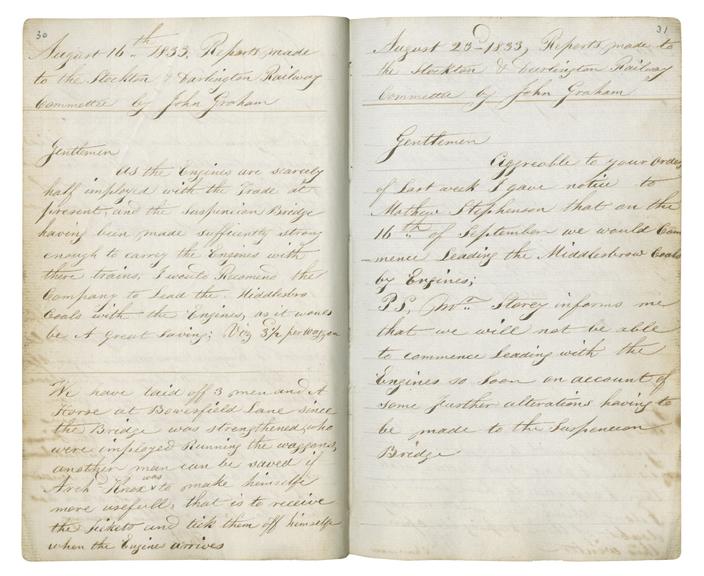 30
August 16th 1833, Reports made
to the Stockton & Darlington Railway
Committee by John Graham
Gentlemen
As the Engines are scarcely
half imployed with the Trade at
present, and the Suspension Bridge
having been made suffecently strong
enough to carry the Engines with
there trains, I would Recomend the
Company to Lead the Middlesbro
Coals with the Engines, as it would
be A Great Saving; Viz 3½ per waggon
We have laid off 3 men and A
Horse at Bowesfield Lane since
the Bridge was strengthened, who
were imployed Running the waggons,
another man can be saved if
Archd Knox was to make himself
more usefull, that is to receive
the Tickets and tick them off himself
when the Engine arrives
31
August 23d 1833, Reports made to
the Stockton & Darlington Railway
Committee by John Graham
Gentlemen
Aggreable to your Order
of Last week I gave notice to
Mathew Stephenson that on the
16th of September we would Com
-mence Leading the Middlesbrow Coals
by Engines;
P.S, Mr. Storey informs me
that we will not be able
to commence Leading with the
Engines so soon on account of
some further alterations having to
be made to the Suspension
Bridge